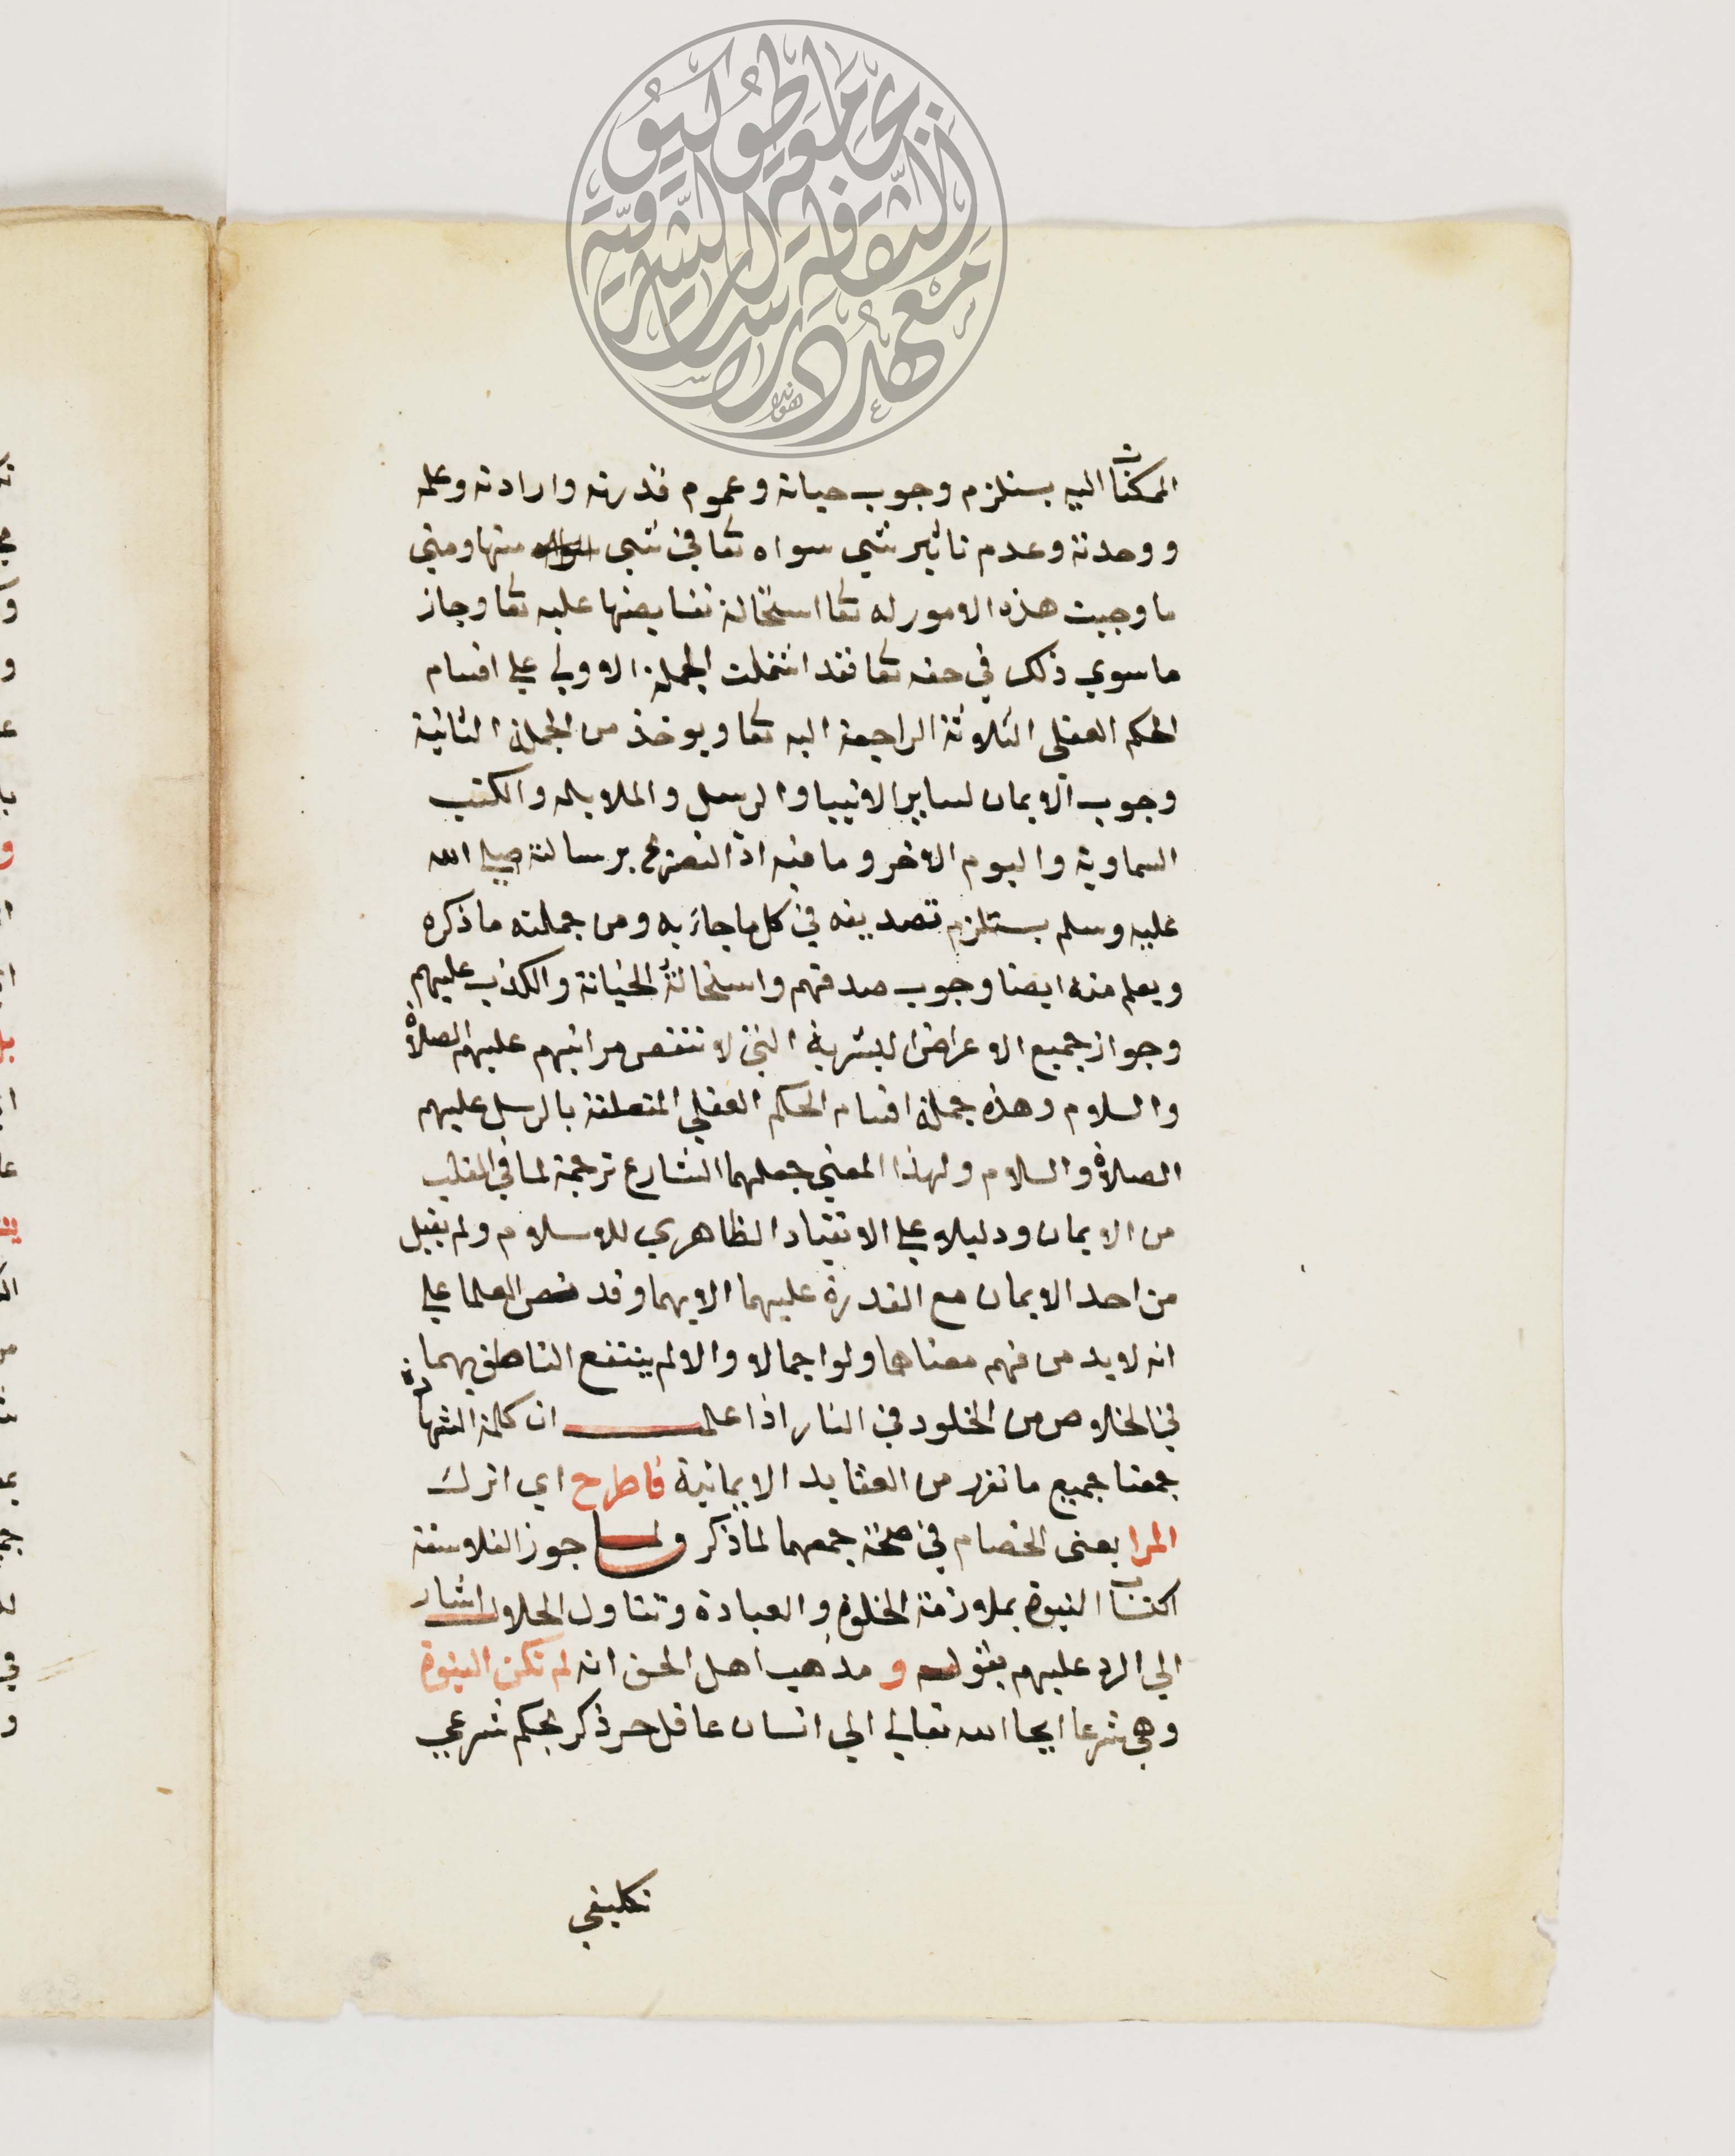 الممكنات اليه يستلزم وجوب حياته وعموم قدرته وارادته وعلمه
ووحدته وعدم تاثير شي سواه تعا في شي منها ومتي
ما وجبت هذه الامور له تعا استحالة نقايضها عليه تعا وجاز
ما سوي ذلك في حقه تعا فقد اشتملت الجملة الاولي علي اقسام
الحكم العقلي الثلاثة الراجعة اليه تعا ويوخذ من الجملة الثانية
وجوب الايمان لساير الانبيا والرسل والملايكه والكتب
السماوية واليوم الاخر وما فيه اذ التصريح برسالته صلي الله
عليه وسلم يستلزم تصديقه في كل ما جاء به ومن جملته ما ذكره
ويعلم منه ايضا وجوب صدقهم واستحالة الخيانة والكذب عليهم
وجواز جميع الاعراض البشرية التي لا تنقص مراتبهم عليهم الصلاة
والسلام وهذه جملة اقسام الحكم العقلي المتعلقة بالرسل عليهم
الصلاة والسلام ولهذا المعني جعلهما الشارع ترجمة لما في القلب
من الايمان ودليلا علي الانقياد الظاهري للاسلام ولم يقبل
من احد الايمان مع القدرة عليهما الا بهما وقد نص العلما علي
انه لا بد من فهم معناها ولو اجمالا والا لم ينتفع الناطق بهما
في الخلاص من الخلود في النار اذا علمــت ان كلمة الشهادة
جمعتا جميع ما تقرر من العقايد الايمانية فاطرح اي اترك
المرا يعني الخصام في صحة جمعهما لما ذكر ولمــا جوز الفلاسفة
اكتساب النبوة بملازمة الخلوة والعبادة وتناول الحلال اشار
الي الرد عليهم بقوله و مذهب اهل الحق انه لم تكن النبوة
وهي شرعا ايحا الله تعالي الي انسان عاقل حر ذكر بحكم شرعي
تكليفي
معهد دراسات الثقافة الشرقية
جامعة طوكيو